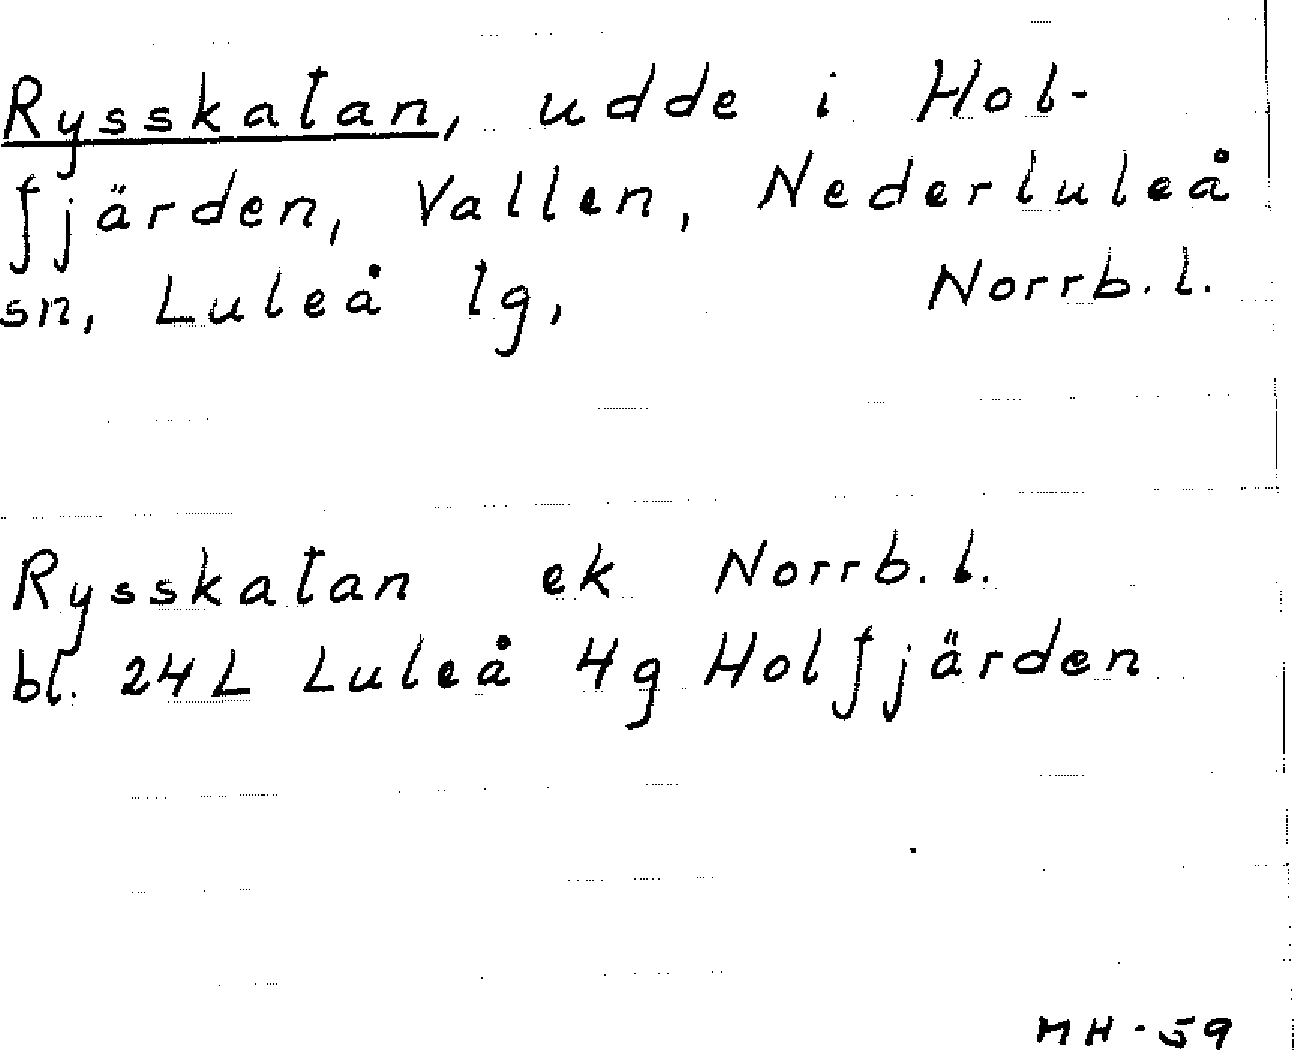 Rysskatan, udde i Hol-
fjärden, Vallen, Nederluleå
sn, Luleå lg, Norrb.l.
Rysskatan ek Norrb.l.
bl. 24L Luleå 4g Holfjärden
MH-59